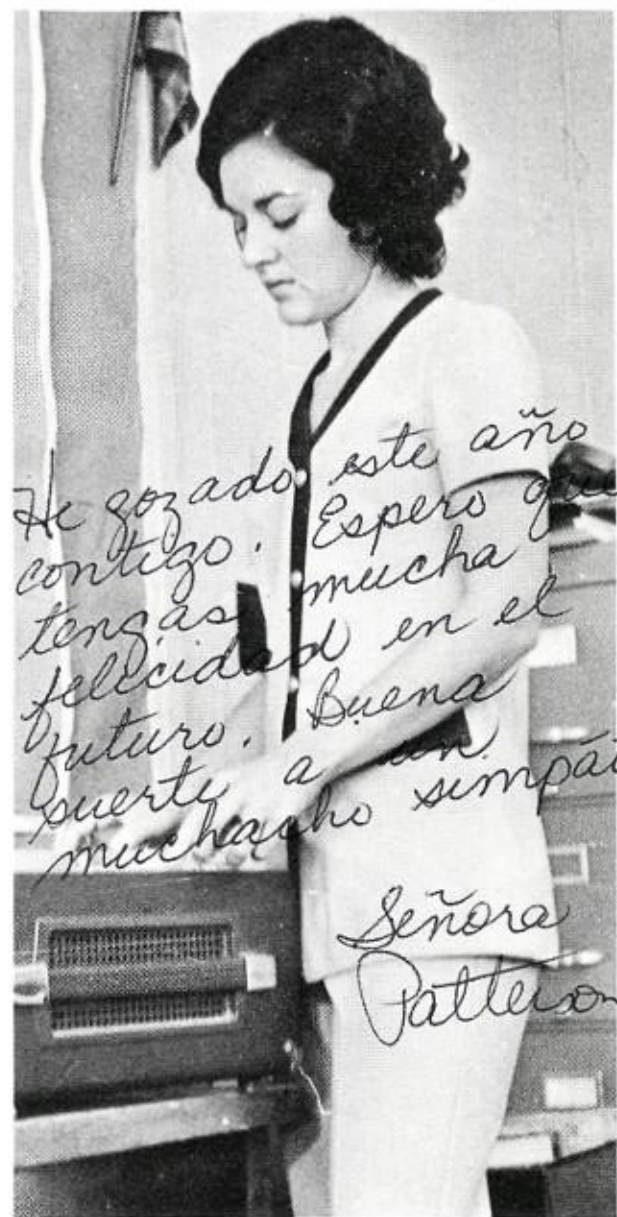 He gozado este año
contigo. Espero que
tengas mucha
felicidad en el
futuro. Buena
suerte a un
muchacho simpát
Señora
Patterson